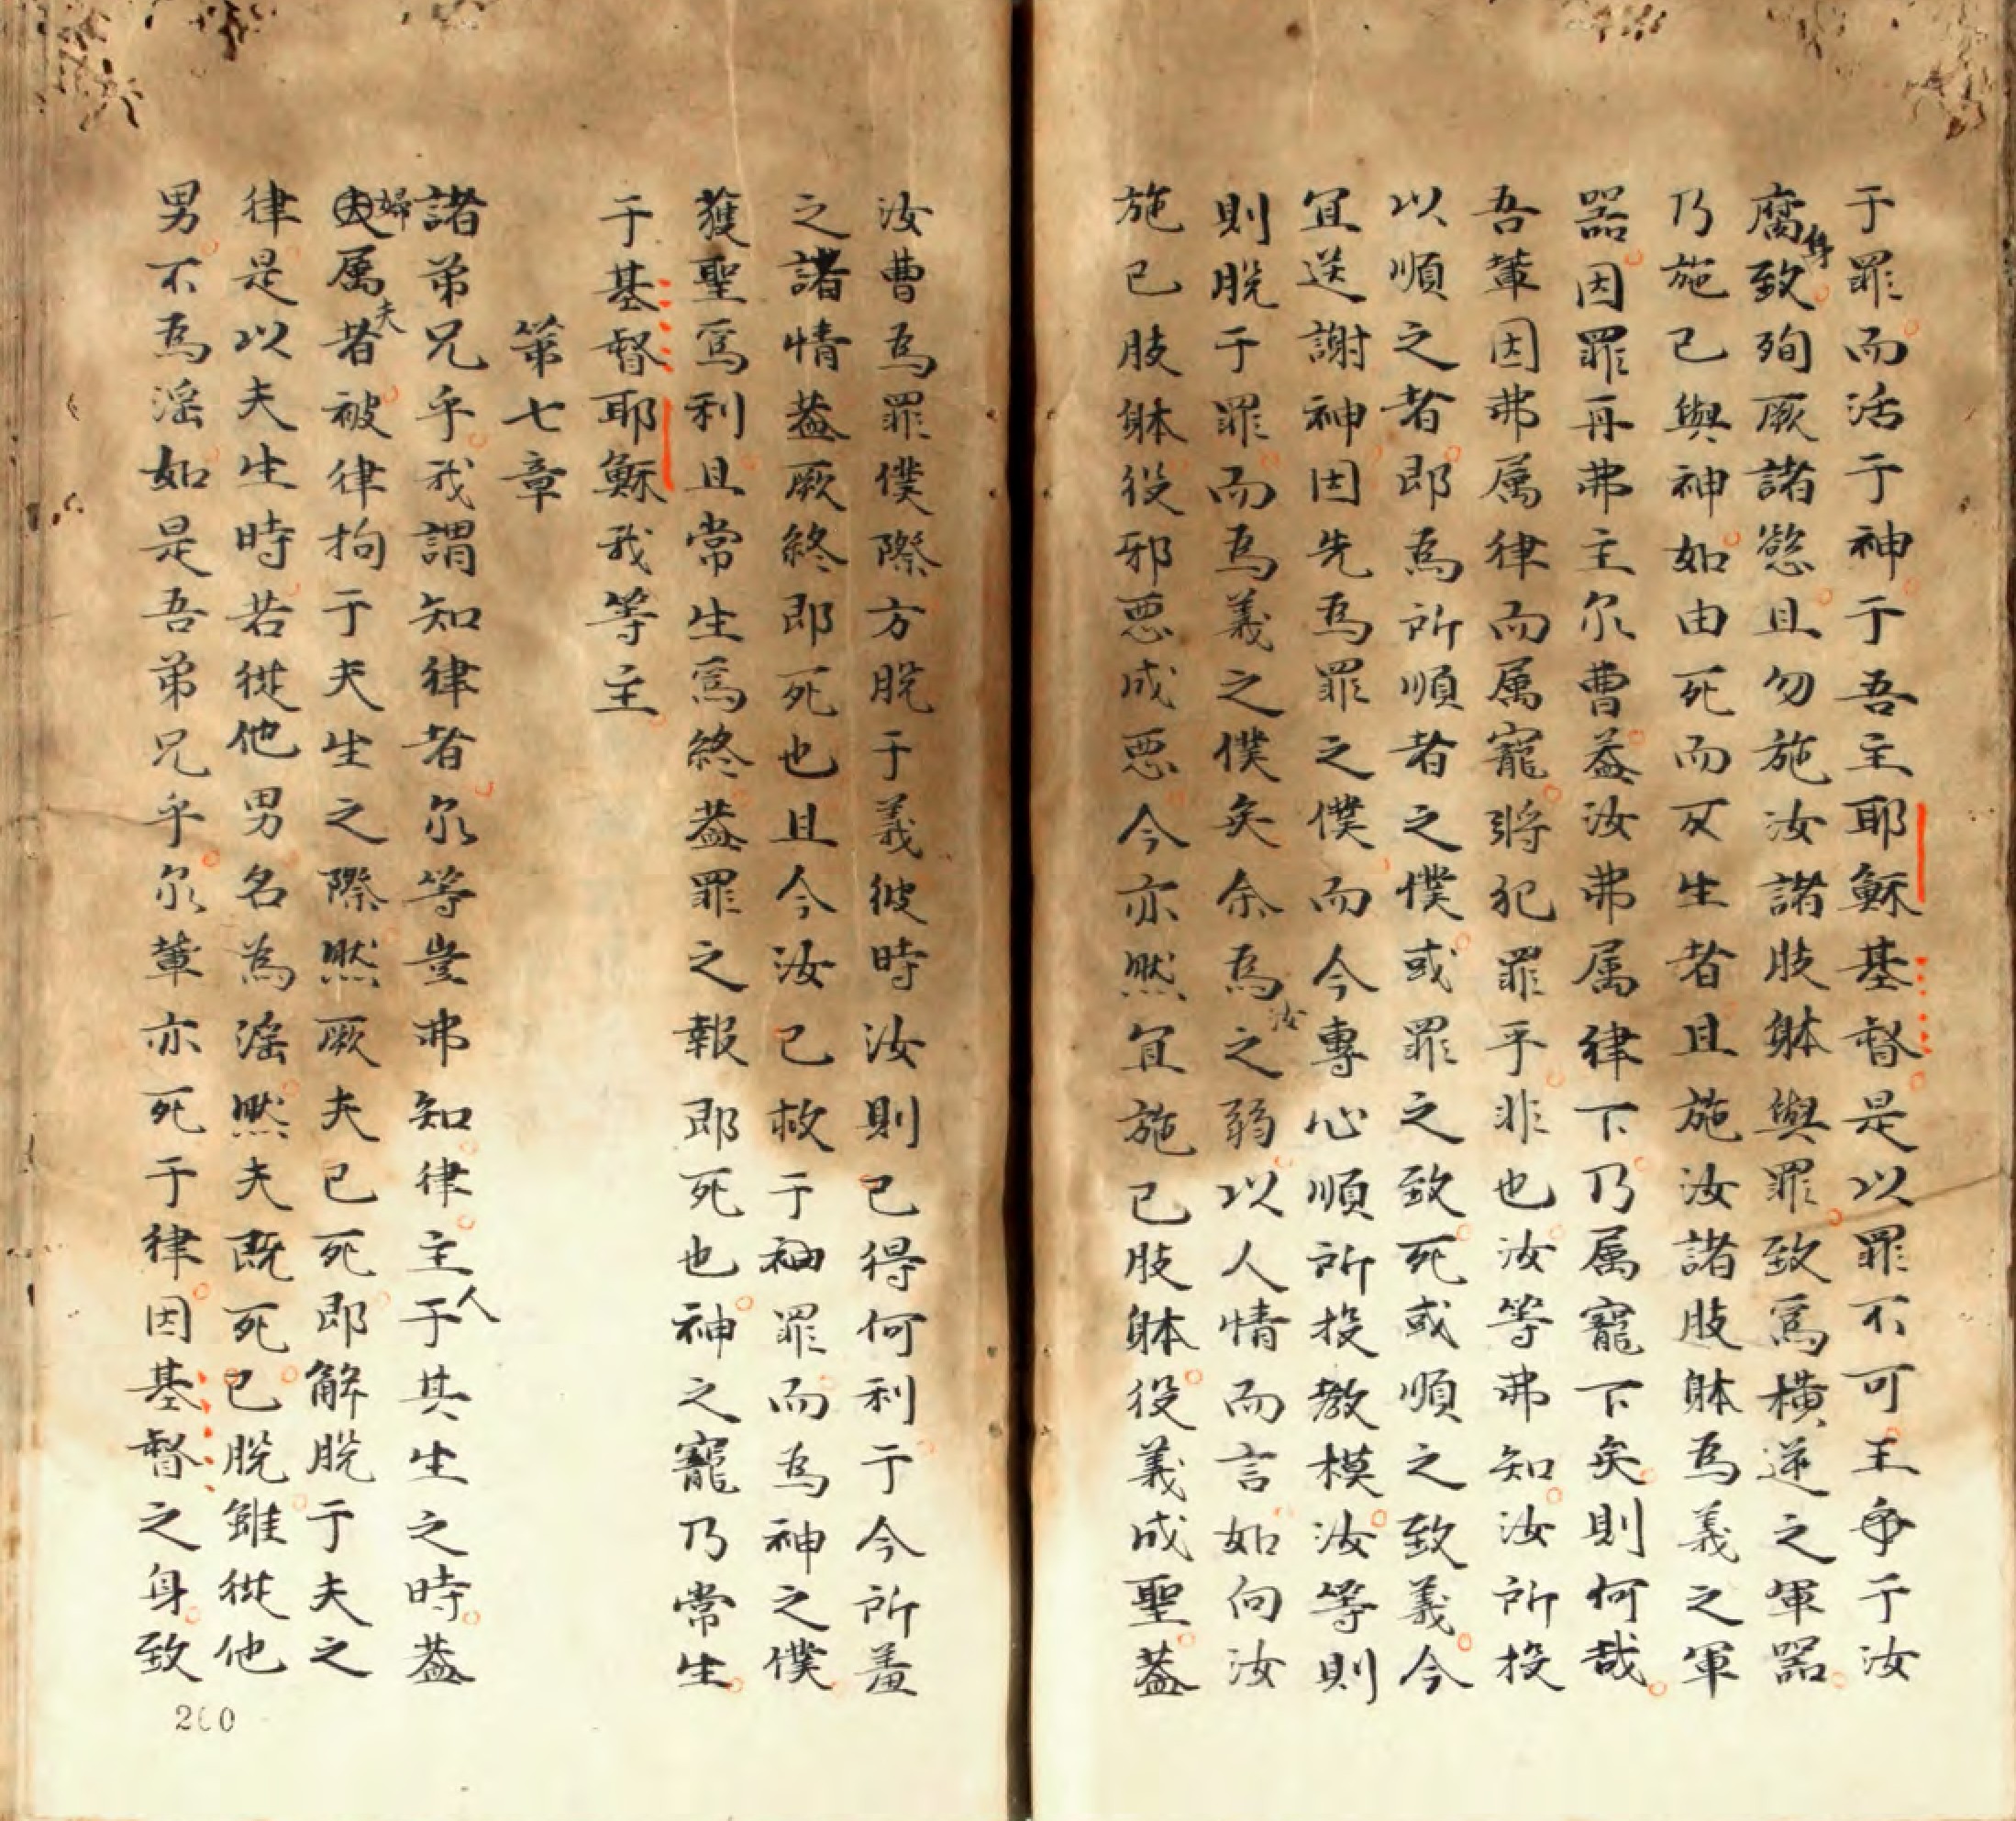 于罪而活于神于吾主耶穌基督是以罪不可王争于汝
腐身致殉厥諸慾且勿施汝諸肢躰與罪致爲橫逆之軍器
乃施已與神如由死而反生者且施汝諸肢躰為義之軍
器因罪再弗主尔曹葢汝弗属律下乃属寵下矣則何哉
吾輩因弗属律而属寵將犯罪乎非也汝等弗知汝所投
以順之者即為所順者之僕或罪之致死或順之致義今
宜送謝神因先為罪之僕而今專心順所投教模汝等則
則脫于罪而為義之僕矣余為汝之弱以人情而言如向汝
施已肢躰役邪惡成惡今亦然宜施已肢躰役義成聖葢
汝曹為罪僕際方脫于義彼時汝則已得何利于今所羞
之諸情葢厥終即死也且今汝已救于罪而為神之僕
獲聖爲利且常生爲終葢罪之報即死也神之寵乃常生
于基督耶穌我等主
第七章
諸弟兄乎我謂知律者尔等豈弗知律主于人其生之時葢
婦属夫者被律拘于夫生之際然厥夫已死即解脫于夫之
律是以夫生時若從他男名為淫然夫既死已脫雖從他
男不為淫如是吾弟兄乎尔輩亦死于律因基督之身致
200